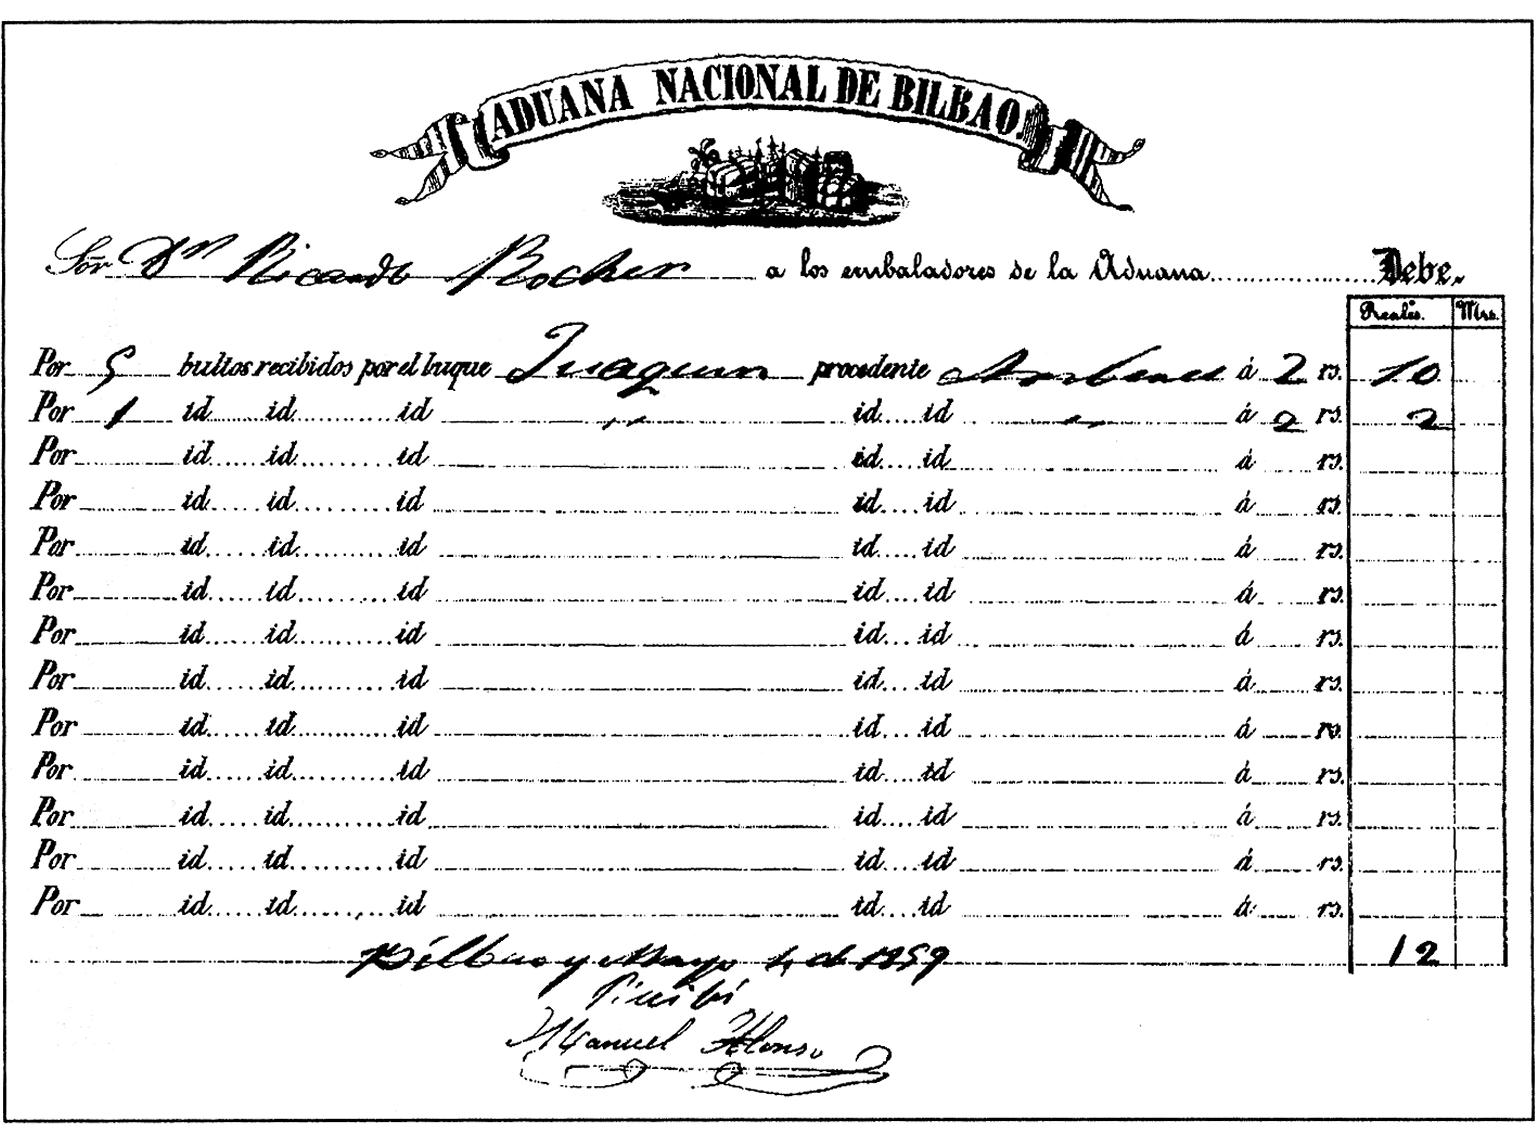 ADUANA NACIONAL DE BILBAO.
Sor. Dn Ricardo Rochen a los embaladores de la Aduana Debe.
Reales. Mrs.
Por 5 bultos recibidos por el buque Juaquin procedente á 2 rs. 10
Por 1 id id id " id id " á 2 rs. 2
Por id id id id id á rs.
Por id id id id id á rs.
Por id id id id id á rs.
Por id id id id id á rs.
Por id id id id id á rs.
Por id id id id id á rs.
Por id id id id id á rs.
Por id id id id id á rs.
Por id id id id id á rs.
Por id id id id id á rs.
Por id id id id id á rs.
Bilbao y Mayo 4 de 1859 12
Recibí
Manuel Alonso